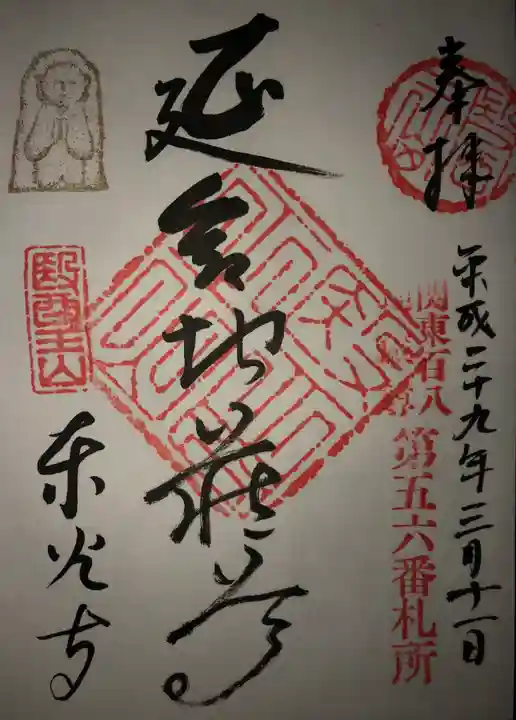 奉拝
平成二十九年三月十一日
関東百八
地蔵尊
第五六番札所
延命地蔵尊
醫王山
東光寺